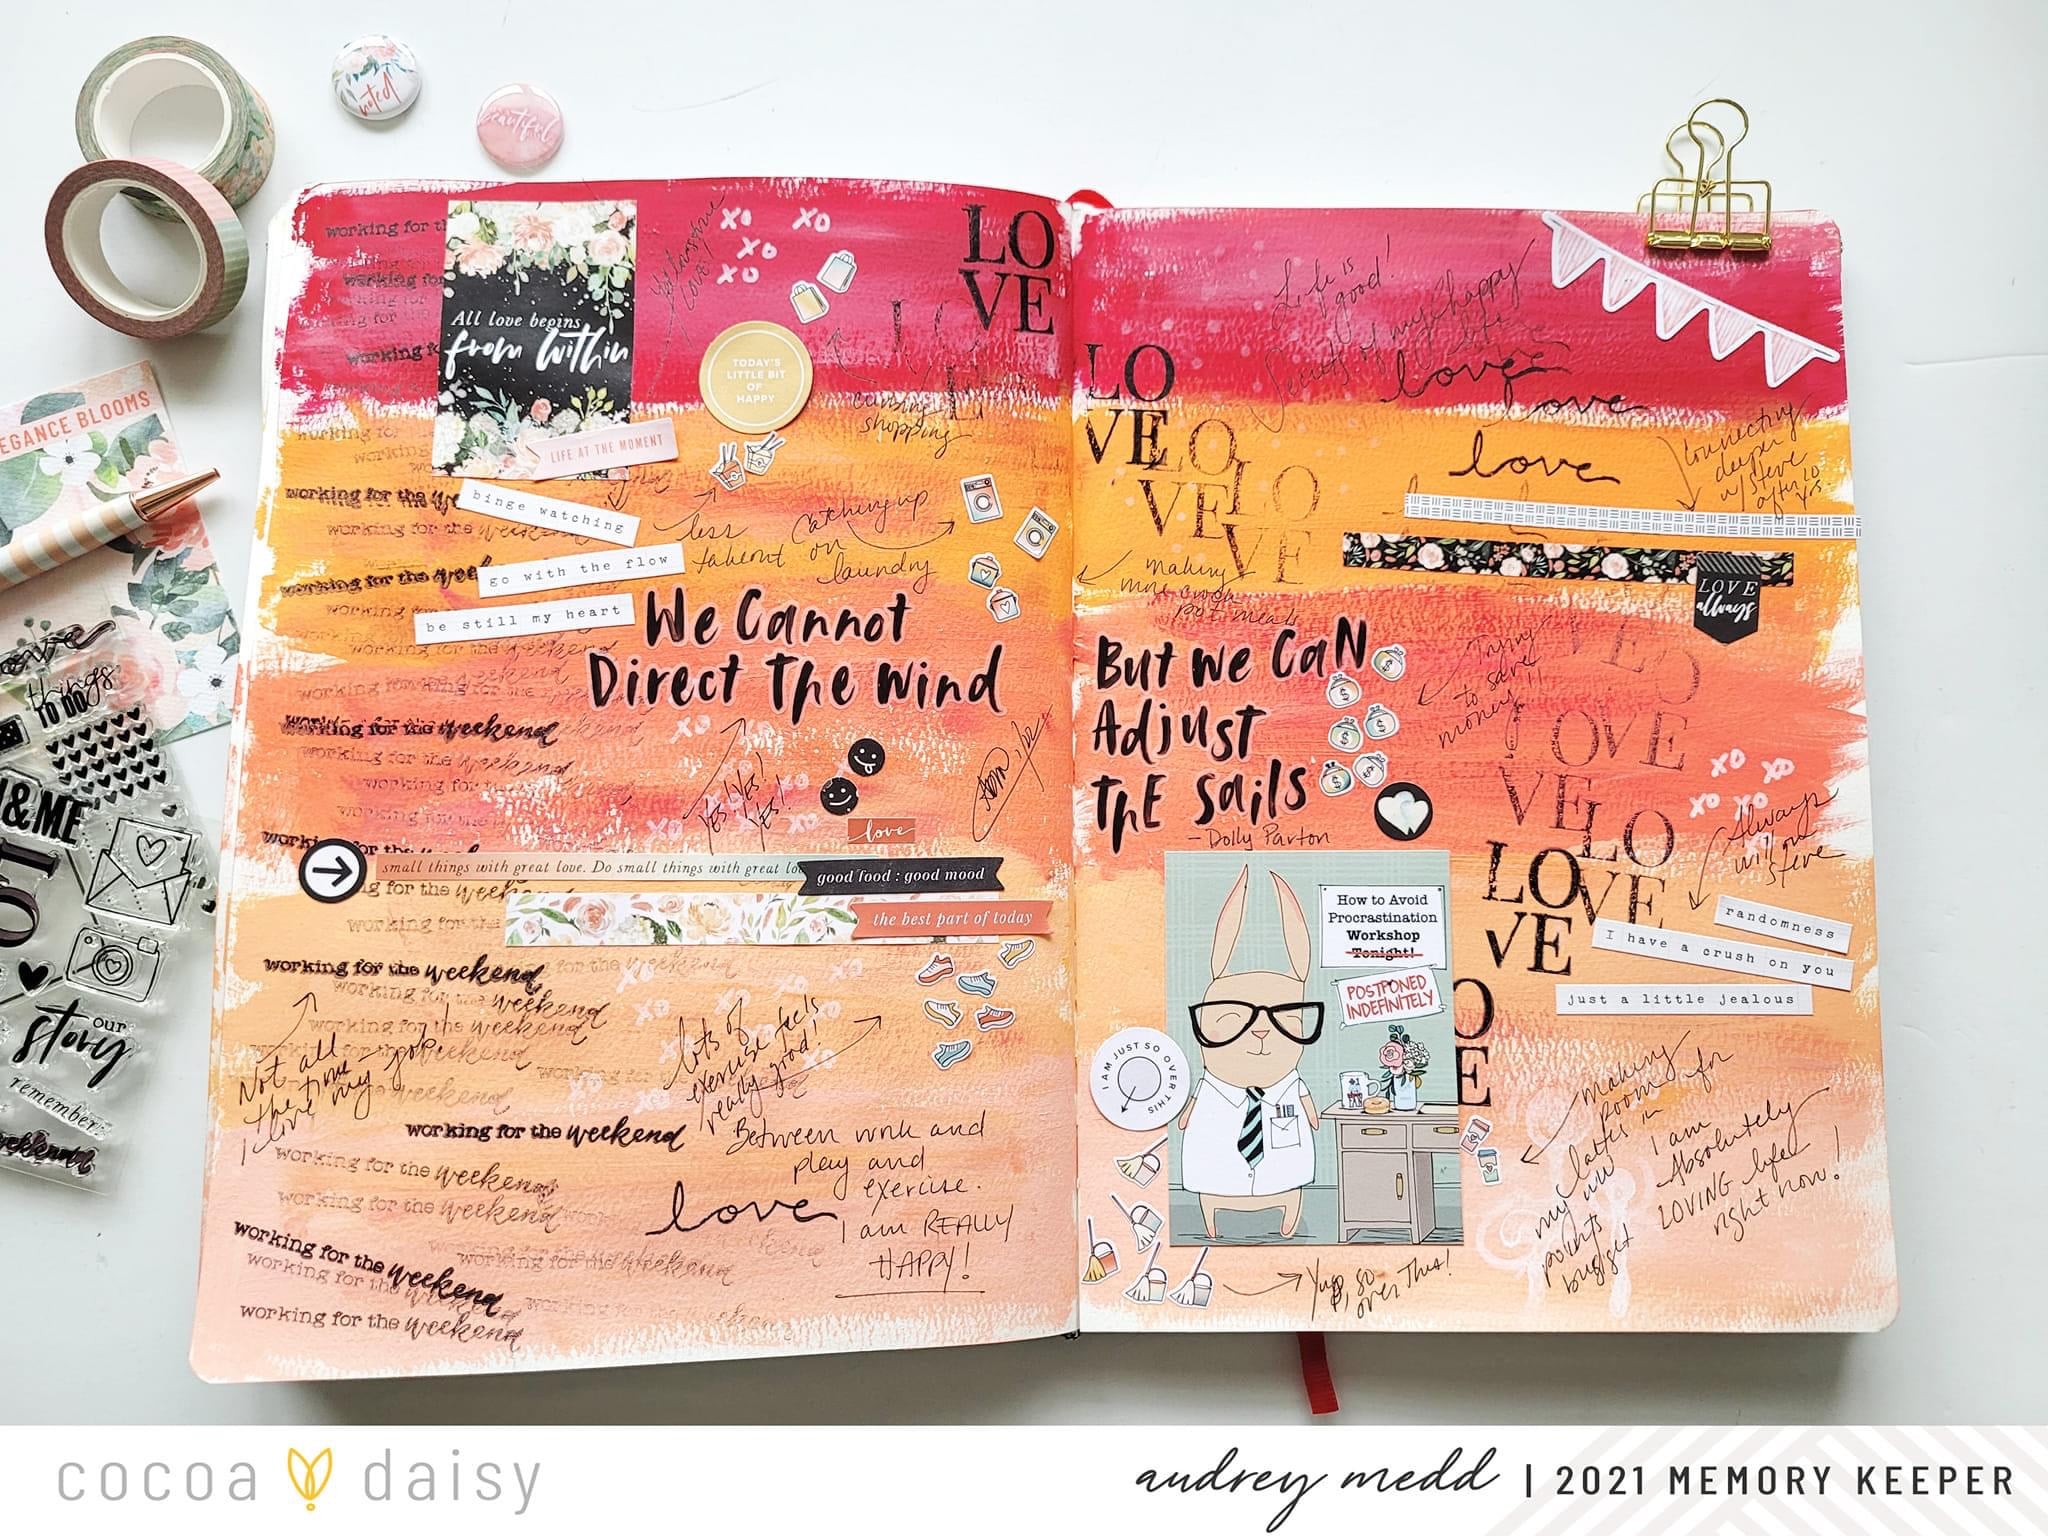 noted
beautiful
EGANCE BLOOMS
things
TO DO
&ME
our
story
remember
weekend
working for the
All love begins
from within
LIFE AT THE MOMENT
xo xo
xo
xo
TODAY'S
LITTLE BIT
OF
HAPPY
LO
VE
less
takeout
Catching up
on
laundry
binge watching
go with the flow
be still my heart
working for the
working for the
We Cannot
Direct The Wind
working for the weekend
working for the weekend
YES! YES!
YES! YES!
love
small things with great love. Do small things with great lo
good food : good mood
the best part of today
for the weekend
working for the weekend
working for the weekend
working for the weekend
Not all
the time
I love my job!
lots of
exercise feels
really good!
working for the weekend
working for the weekend
working for the weekend
Between work and
play and
exercise.
I am REALLY
HAPPY!
love
working for the weekend
working for the weekend
working for the weekend
Life is
good!
Secrets of my happy
life
love
love
love
LO
VE
LO
VE
LO
VE
Connecting
deeper
w/ Steve
after 10
yrs.
making
more crock
pot meals
LOVE
always
But We Can
Adjust
The Sails
- Dolly Parton
Trying
to save
money!!
xo xo
xo xo
Always
with
Steve
LO
VE
LO
VE
LO
VE
How to Avoid
Procrastination
Workshop
Tonight!
POSTPONED
INDEFINITELY
I AM JUST SO OVER THIS
randomness
I have a crush on you
just a little jealous
making
room for
lattes in
my ww
points
budget
I am
Absolutely
LOVING life
right now!
Yup, so
over this!
cocoa daisy
audrey medd | 2021 MEMORY KEEPER